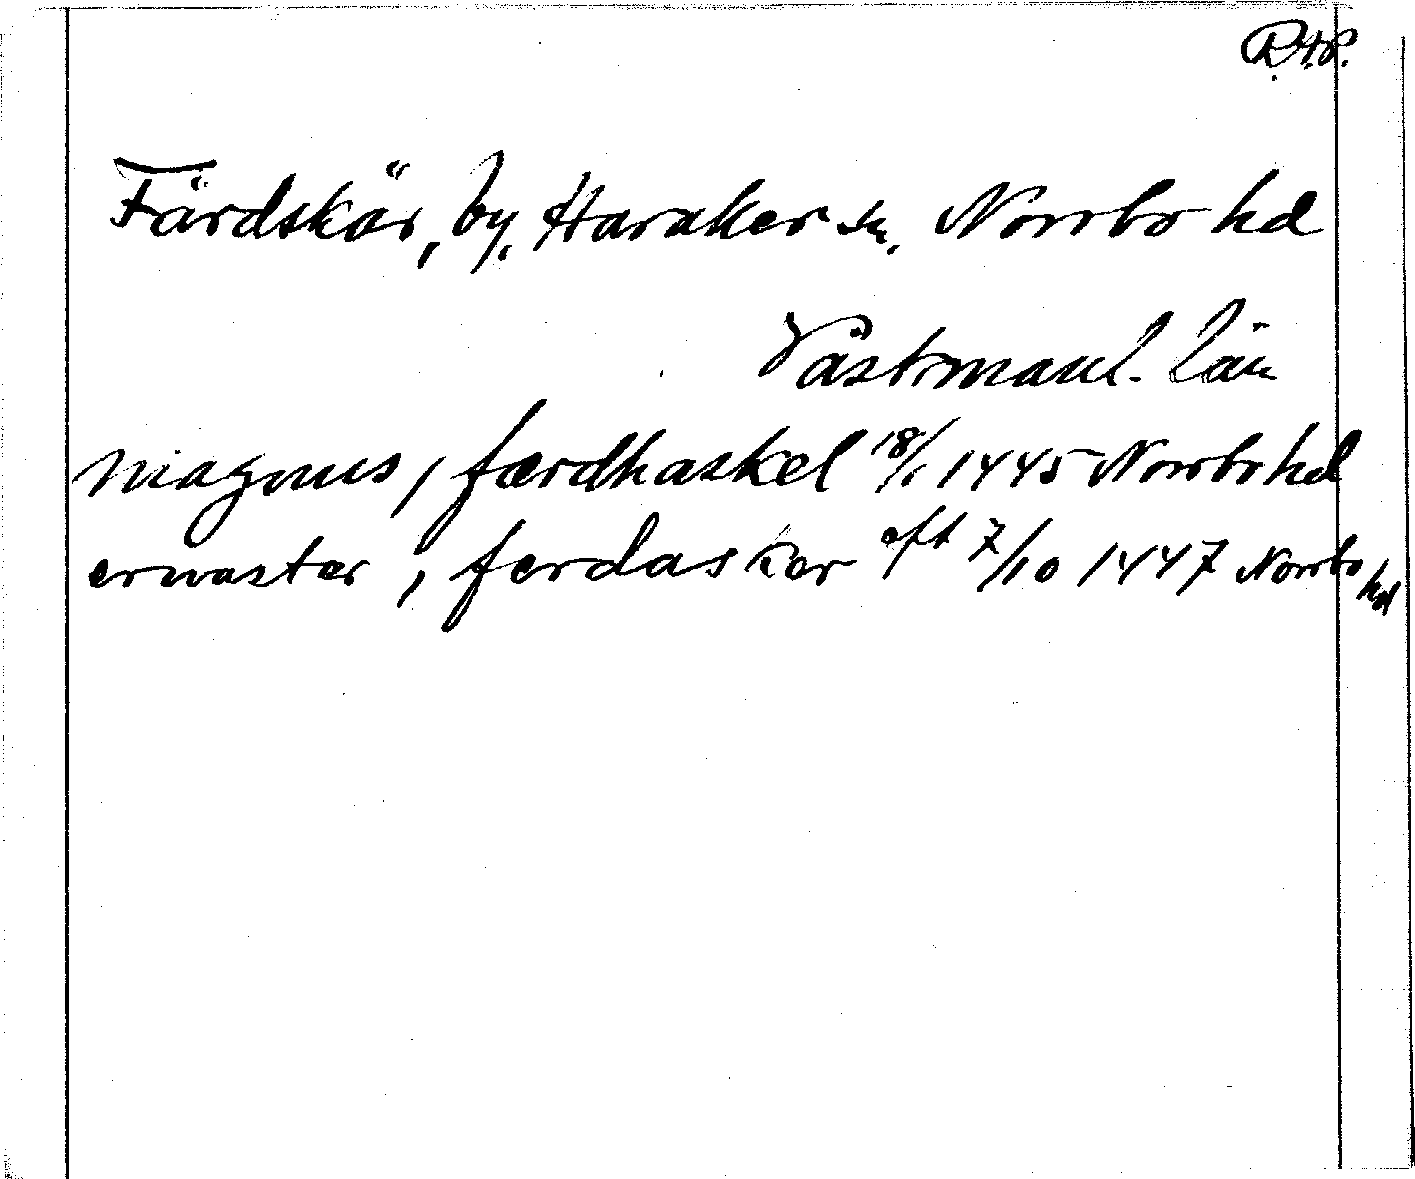 Färdskär, by, Haraker sn. Norrbo hd
Västmanl. län
magnus, i færdhaskel 18/1 1445 Norrbo hd
erwaster, i ferdasker eft 7/10 1447 Norrbo hd